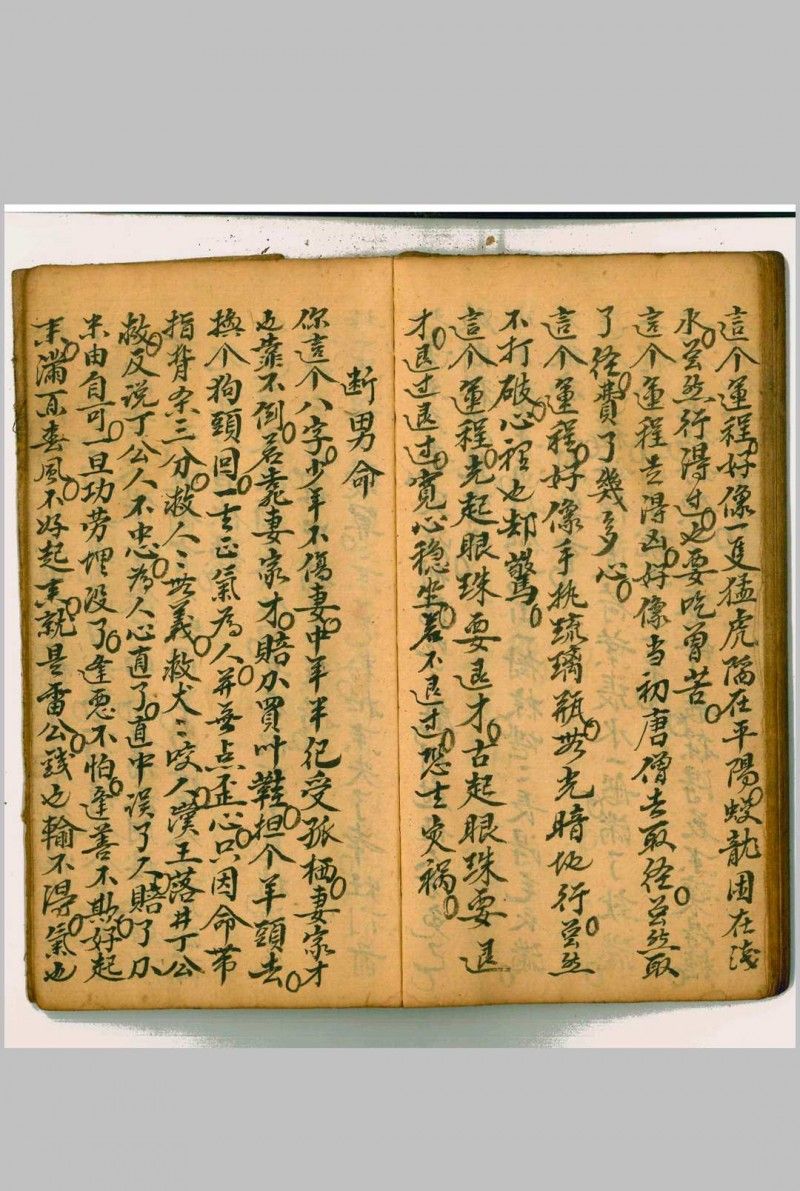 這个運程。好像一隻猛虎陷在平陽。蛟龍困在浅
水。虽然行得过。也要吃曾苦。
這个運程是得凶。好像当初唐僧去取径。虽然取
了径。費了幾多心。
這个運程。好像手挑琉璃瓶。无光暗地行。虽然
不打破。心裡也却驚。
這个運程。尤起眼珠要退才。古起眼珠要退
才。退过退过。寬心稳坐。若不退过。恐去灾禍。
断男命
你這个八字。少年不傷妻。中年半纪受孤栖。妻家才
也靠不倒。若靠妻家才。賠力買吖鞋。担个羊頭去。
換个狗頭回。一生正氣為人。并無点歪心。只因命带
指背杀三分。救人人无義。救犬犬咬人。漢王落井丁公
救。反说丁公人不忠。為人心直了。直中误了人。賠了力
米由自可。一旦功劳埋没了。逢恶不怕。逢善不欺。好起
来。滿面春風。不好起来。就是雷公錢也輸不得。氣也